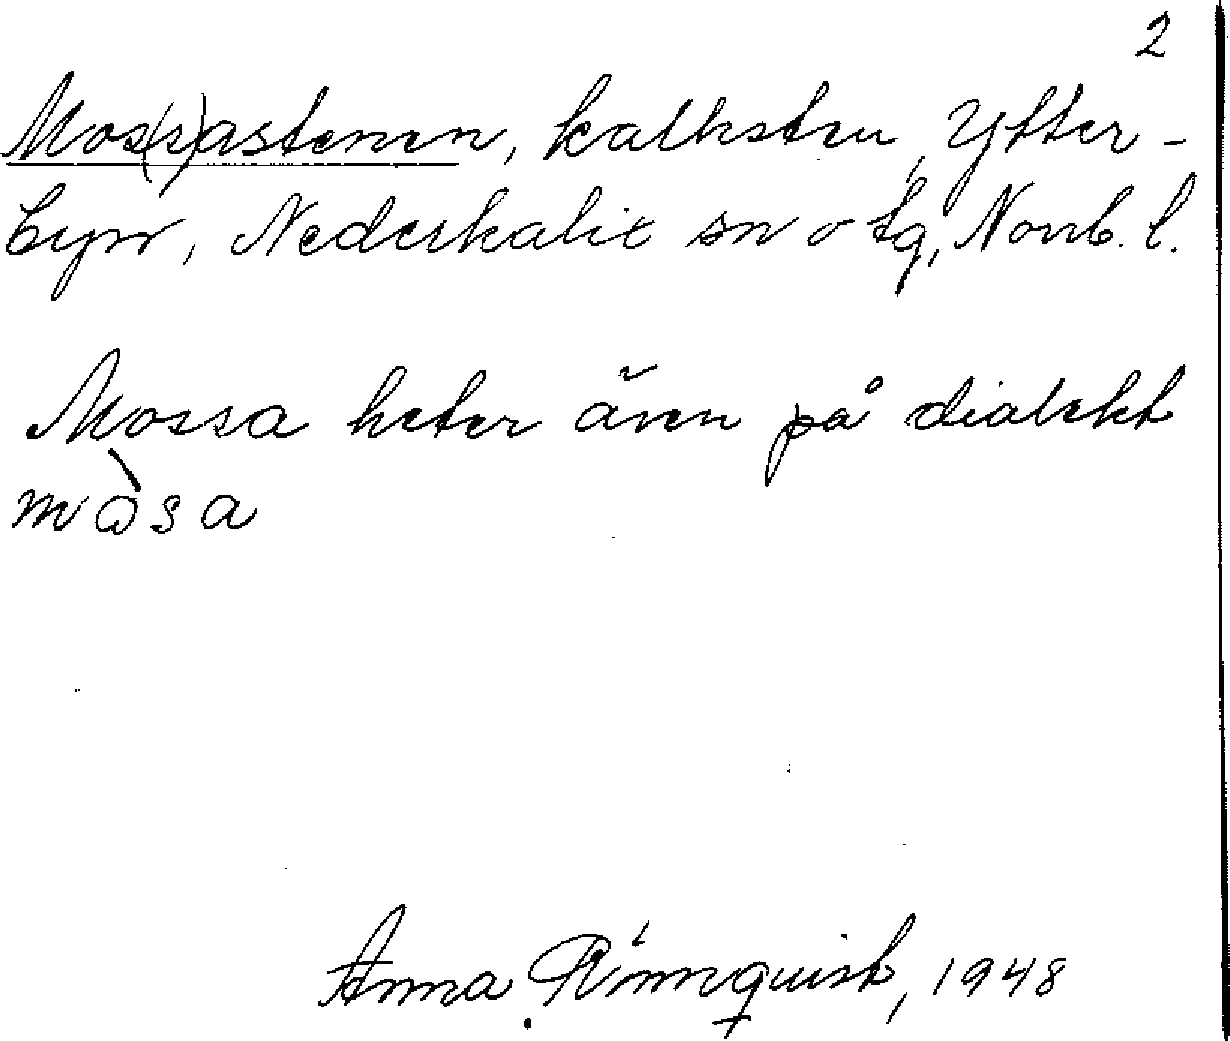 2
Mos(s)astenen, kalksten, Ytter-
byn, Nederkalix sn o tg, Norrb. l.
Mossa heter även på dialekt
mòsa
Anna Rönnquist, 1948